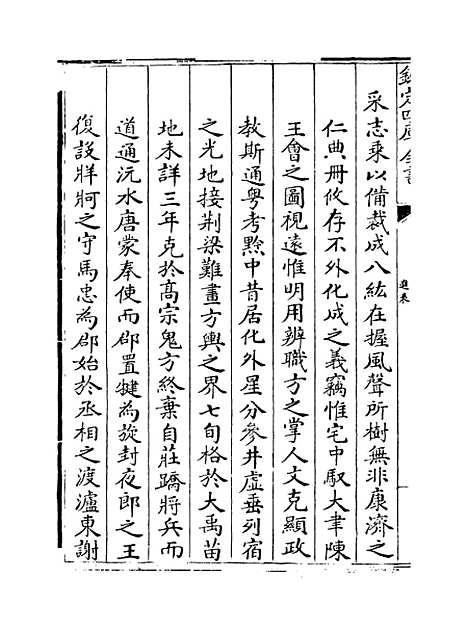 欽定四庫全書
進表
采志乘以備裁成八紘在握風聲所樹無非康濟之
仁典冊攸存不外化成之義竊惟宅中馭大聿陳
王會之圖視遠惟明用辨職方之掌人文克顯政
教斯通粤考黔中昔居化外星分參井虛垂列宿
之光地接荆梁難畫方輿之界七旬格於大禹苗
地未詳三年克於髙宗鬼方終棄自莊蹻將兵而
道通沅水唐蒙奉使而郡置犍為旋封夜郎之王
復設牂牁之守馬忠為郡始於丞相之渡瀘東謝